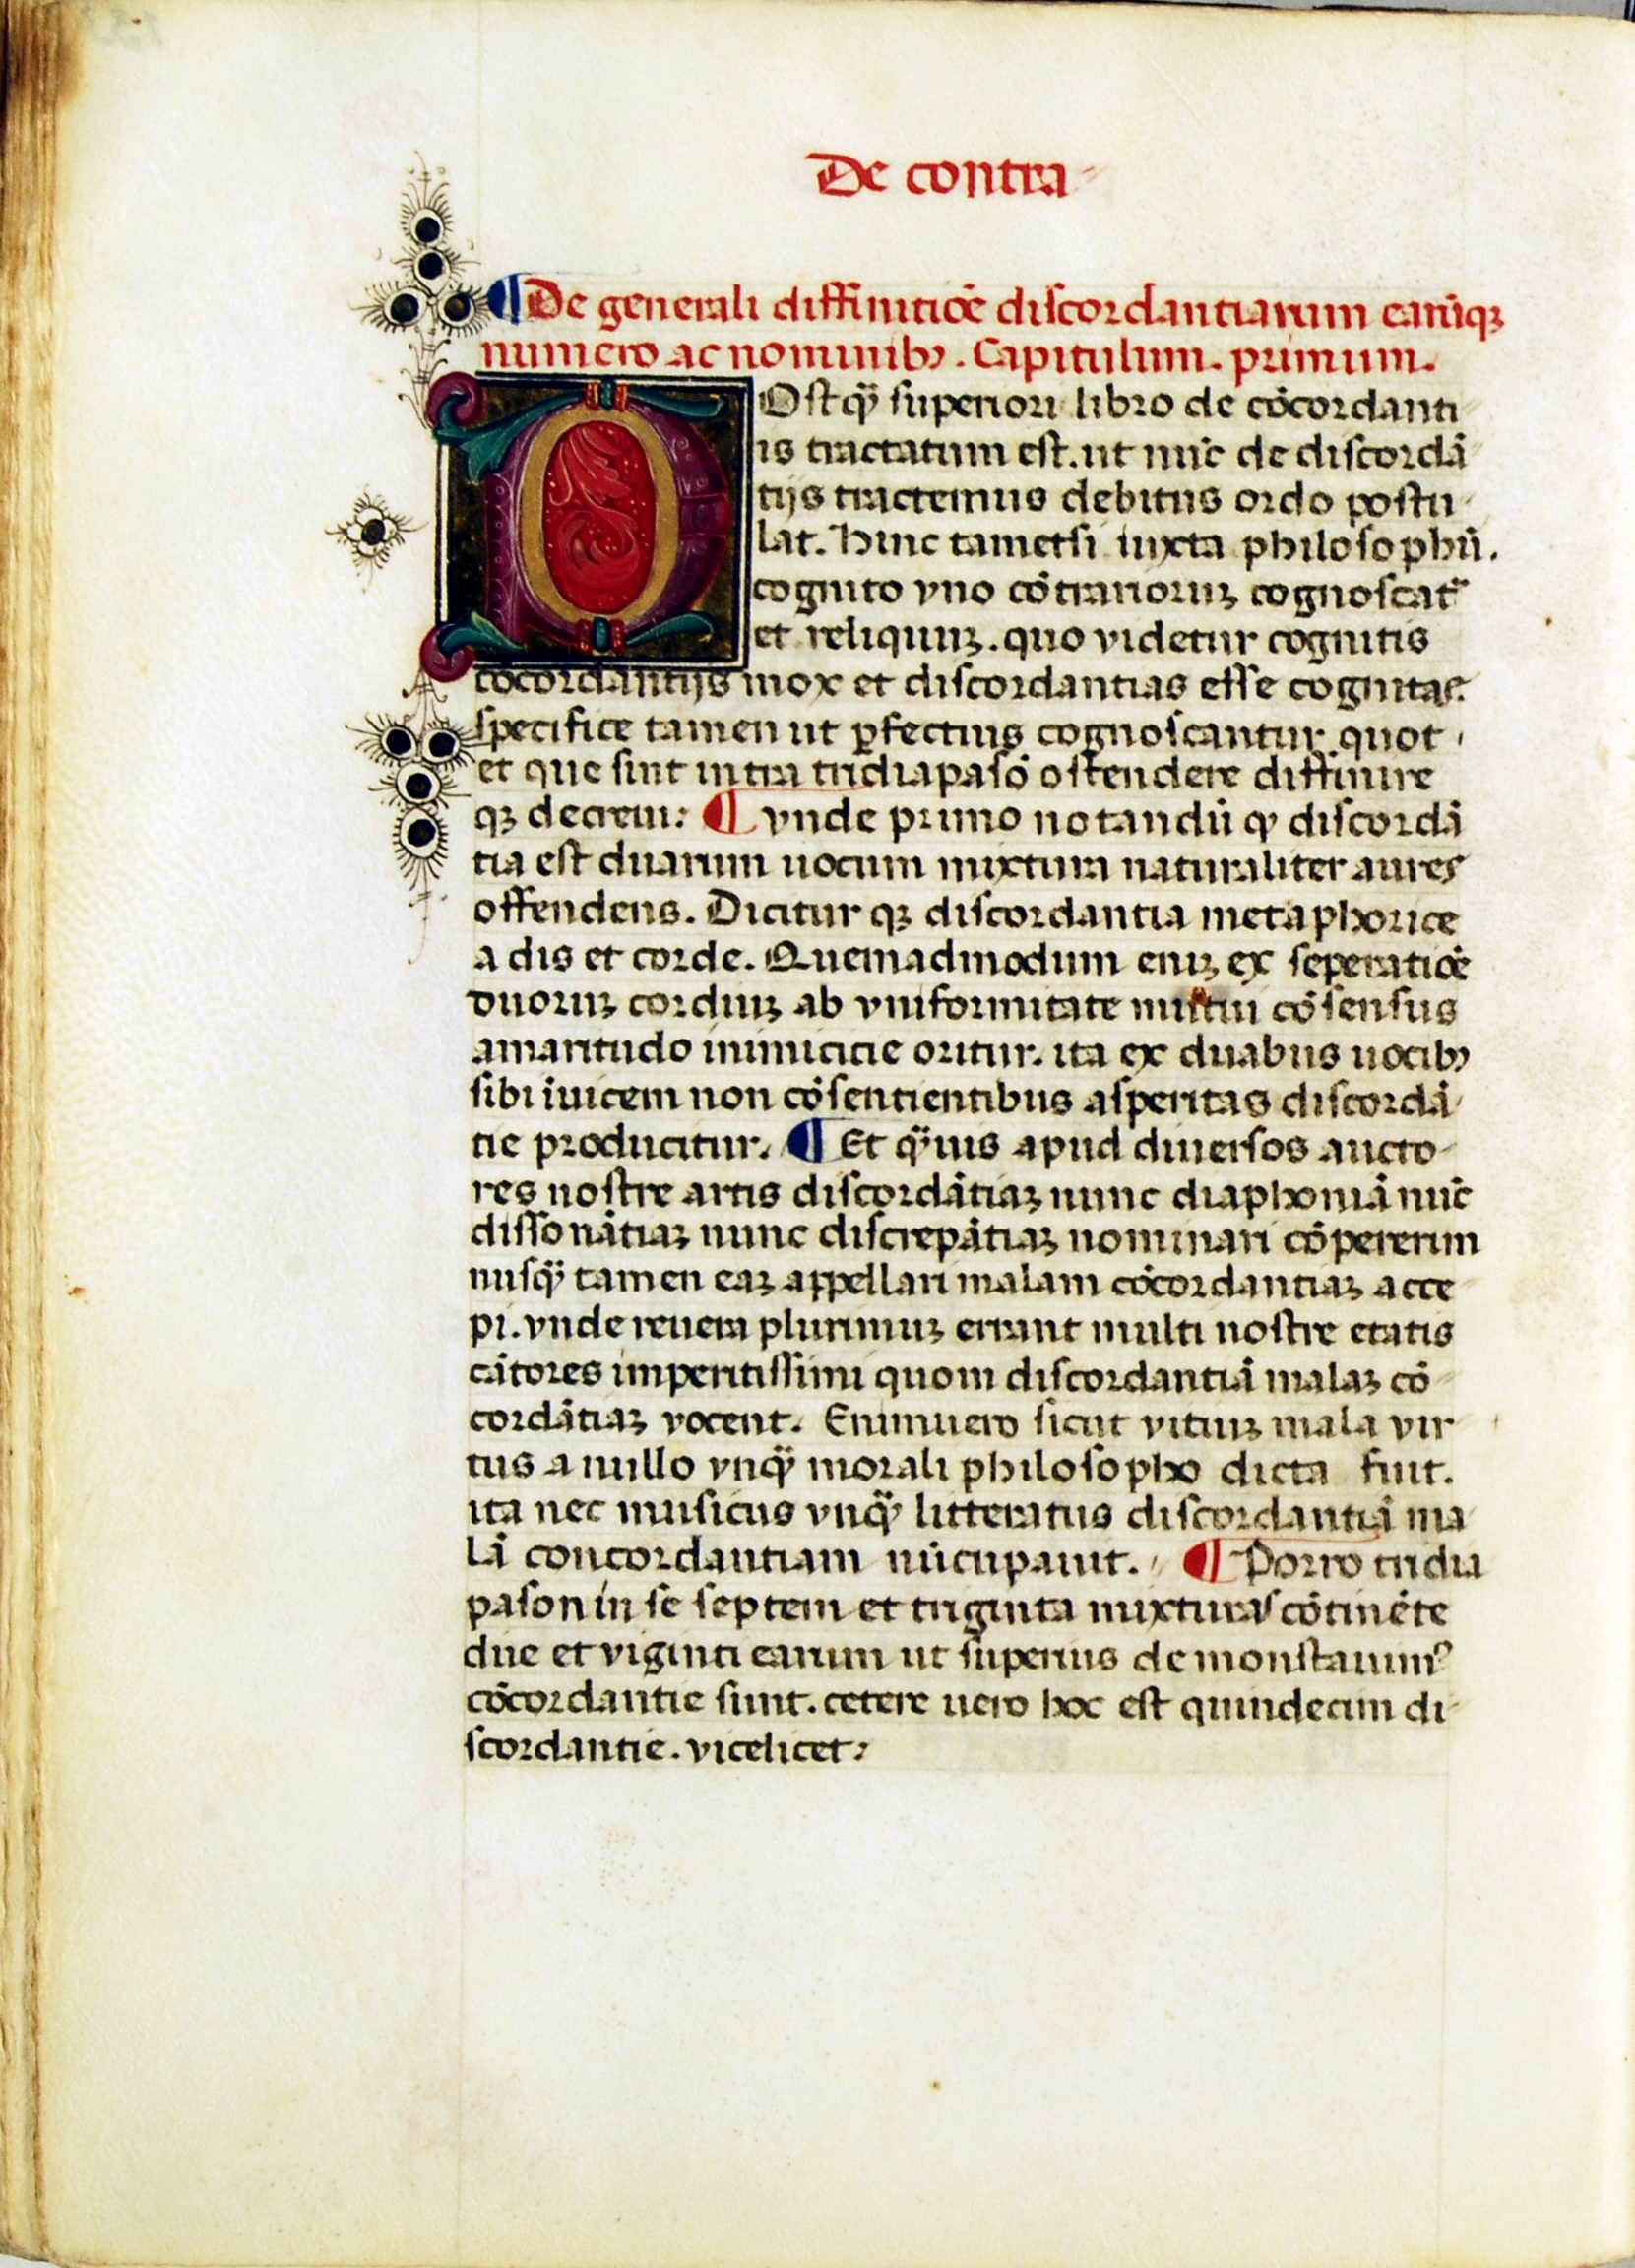 De contra
¶ De generali diffinitiōe discordantiarum earūqꝫ
numero ac nominibꝰ. Capitulum. primum.
POstqᷓ superiori libro de cōcordanti
is tractatum est. ut nūc de discordā
tijs tractemus debitus ordo postu
lat. Hinc tametsi iuxta philosophū.
cognito vno cōtrarioruꝫ cognoscatᷣ
et reliquuꝫ. quo videtur cognitis
cōcordantijs mox et discordantias esse cognitas.
specifice tamen ut ꝑfectius cognoscantur. quot
et que sint intra tridiapasō ostendere diffinire
qꝫ decreui: ¶ vnde primo notandū ꝙ discordā
tia est duarum uocum mixtura naturaliter aures
offendens. Dicitur qꝫ discordantia metaphorice
a dis et corde. Quemadmodum eniꝫ ex seperatiōe
duoruꝫ corduuꝫ ab vniformitate mutui cōsensus
amaritudo inimicicie oritur. ita ex duabus uocibꝰ
sibi īuicem non cōsentientibus asperitas discordā
tie producitur. ¶ Et qᷓuis apud diuersos aucto
res nostre artis discordātiaꝫ nunc diaphoniā nūc
dissonātiaꝫ nunc discrepātiaꝫ nominari cōpererim
nusqᷓ tamen eaꝫ appellari malam cōcordantiaꝫ acce
pi. vnde reuera plurimuꝫ errant multi nostre etatis
cātores imperitissimi quom discordantiā malaꝫ cō
cordātiaꝫ vocent. Enimuero sicut vitiuꝫ mala vir
tus a nullo vnqᷓ morali philosopho dicta fuit.
ita nec musicus vnqᷓ litteratus discordantiā ma
lā concordantiam nūcupauit. ¶ Porro tridia
pason in se septem et triginta mixturas cōtinēte
due et viginti earum ut superius demonstauimꝰ
cōcordantie sunt. cetere uero hoc est quindecim di
scordantie. vicelicet: